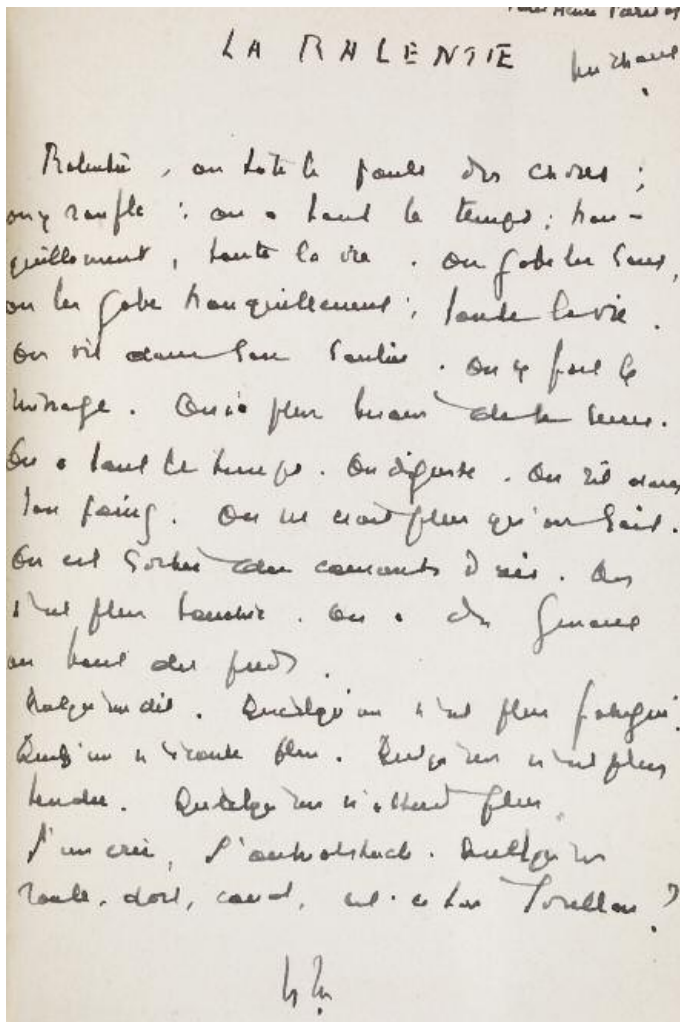 Pour Henri Parisot
LA RALENTIE
Michaux
Ralentie, on tâte le pouls des choses ;
on y ronfle ; on a tout le temps ; tran-
quillement, toute la vie. On gobe les sons,
on les gobe tranquillement ; toute la vie.
On vit dans son soulier. On y fait le
ménage. On n'a plus besoin de se serrer.
On a tout le temps. On déguste. On rit dans
son poing. On ne croit plus qu'on sait.
On est sortie des courants d'air. On
n'est plus touchée. On a des genoux
au bout des pieds.
Quelqu'un dit. Quelqu'un n'est plus fatigué.
Quelqu'un n'écoute plus. Quelqu'un n'est plus
tendu. Quelqu'un n'attend plus.
L'un crie, l'autre obstacle. Quelqu'un
roule, dort, coud, est-ce toi Lorellou ?